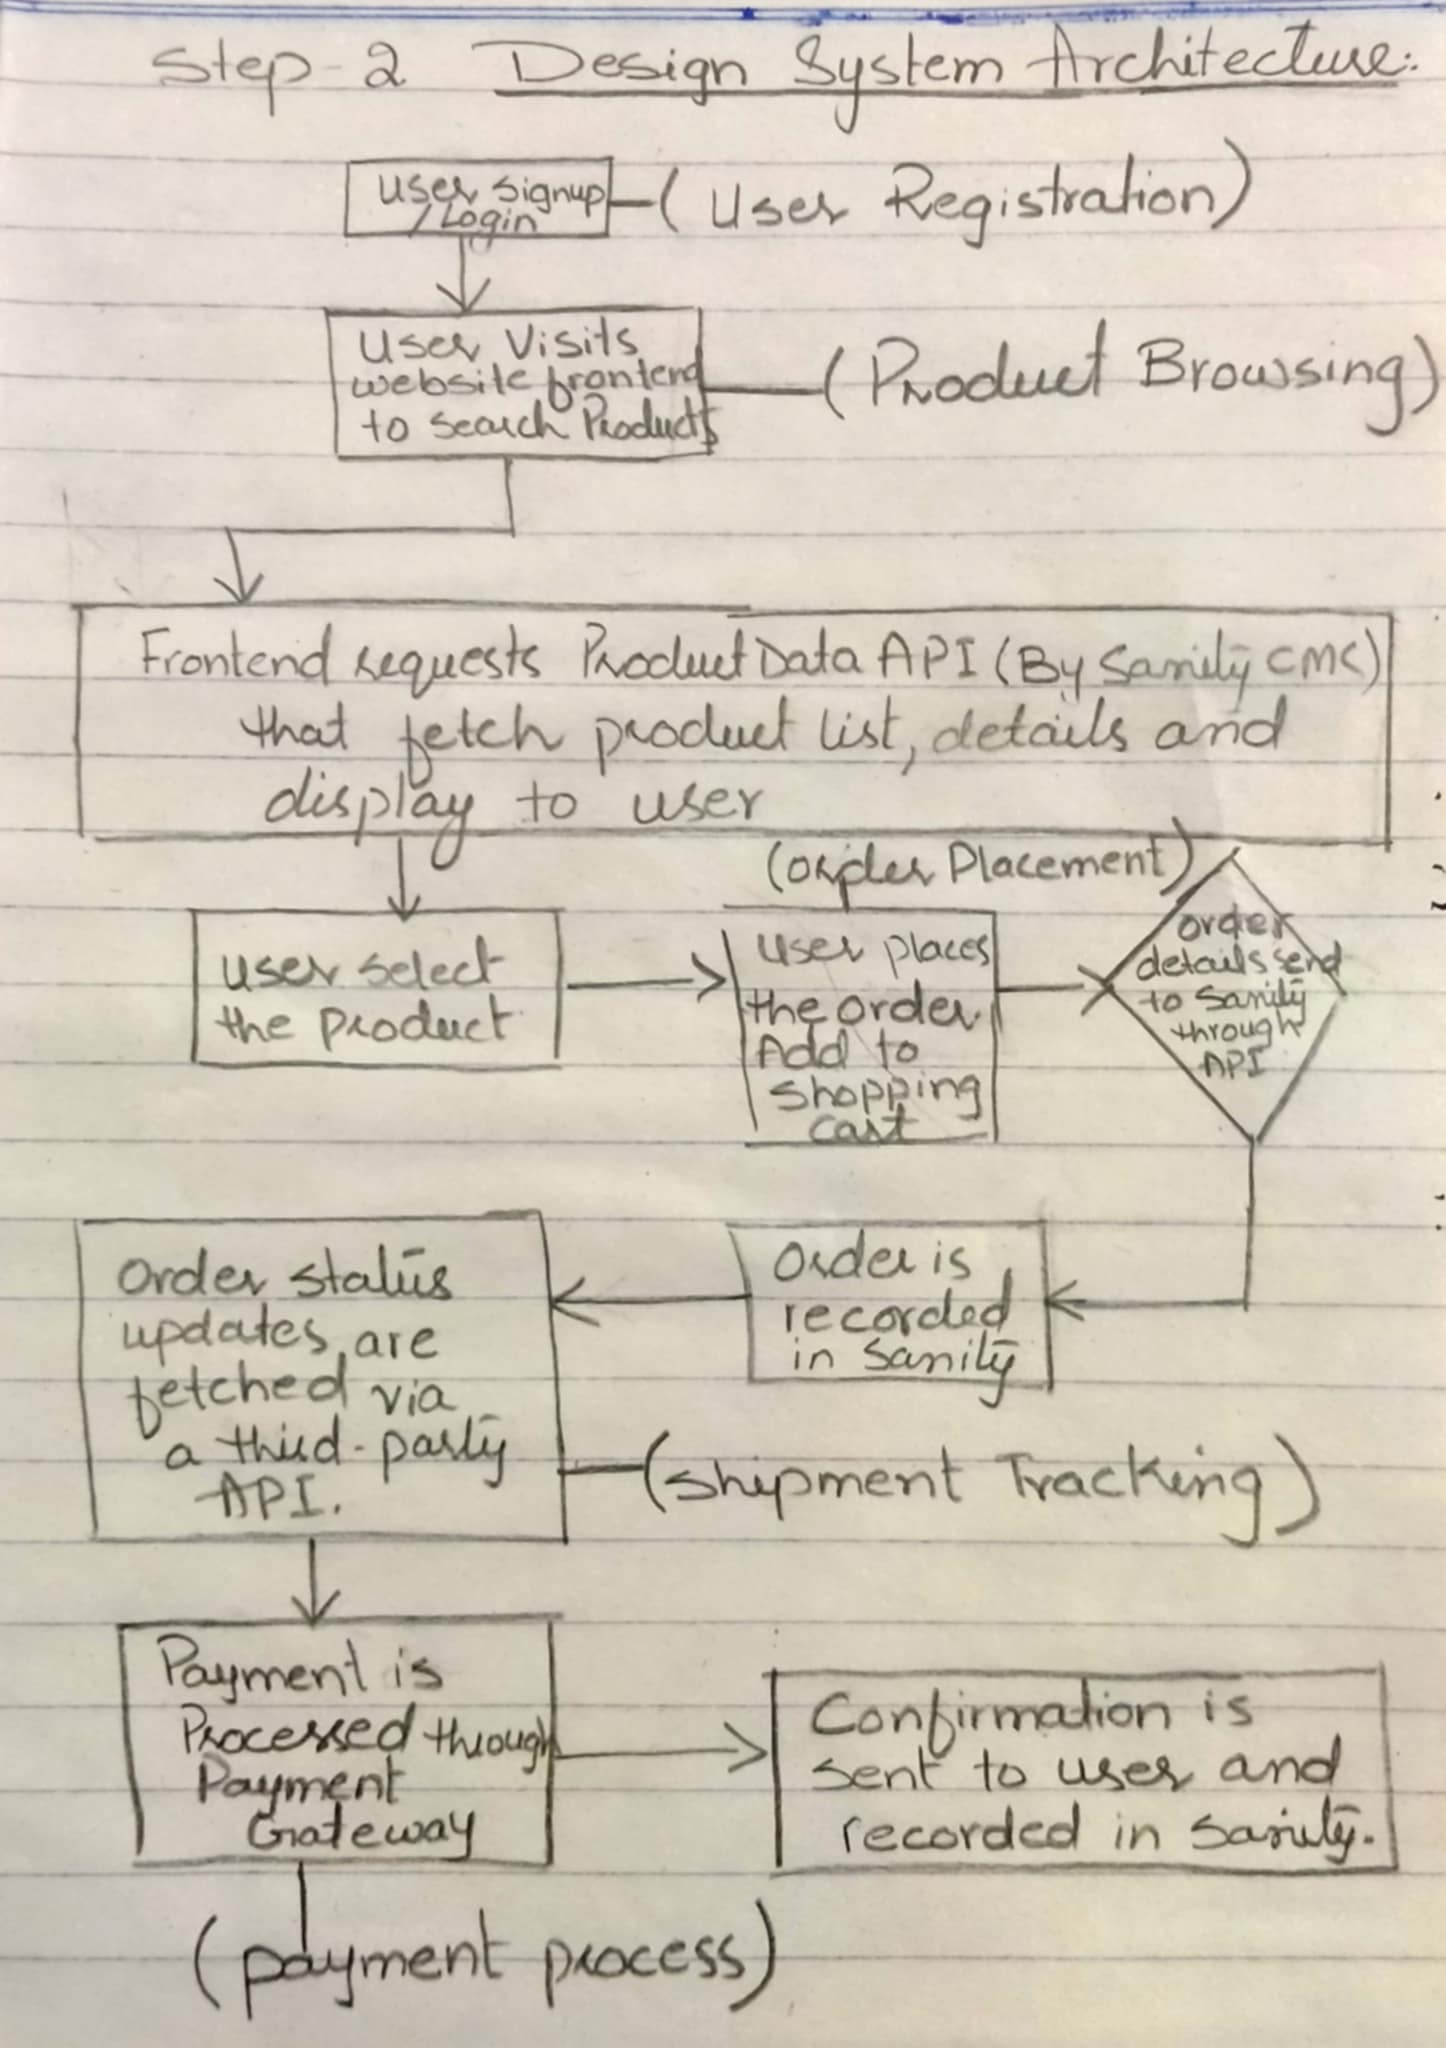 Step-2 Design System Architecture:
User Signup
/Login
(User Registration)
User Visits
website frontend
to search Products
(Product Browsing)
Frontend requests Product Data API (By Sanity CMS)
that fetch product list, details and
display to user
(Order Placement)
User select
the Product
User places
the order
Add to
shopping
cart
order
details send
to Sanity
through
API
Order is
recorded
in Sanity
Order status
updates are
fetched via
a third-party
API.
(Shipment Tracking)
Payment is
Processed through
Payment
Gateway
(payment process)
Confirmation is
sent to user and
recorded in Sanity.